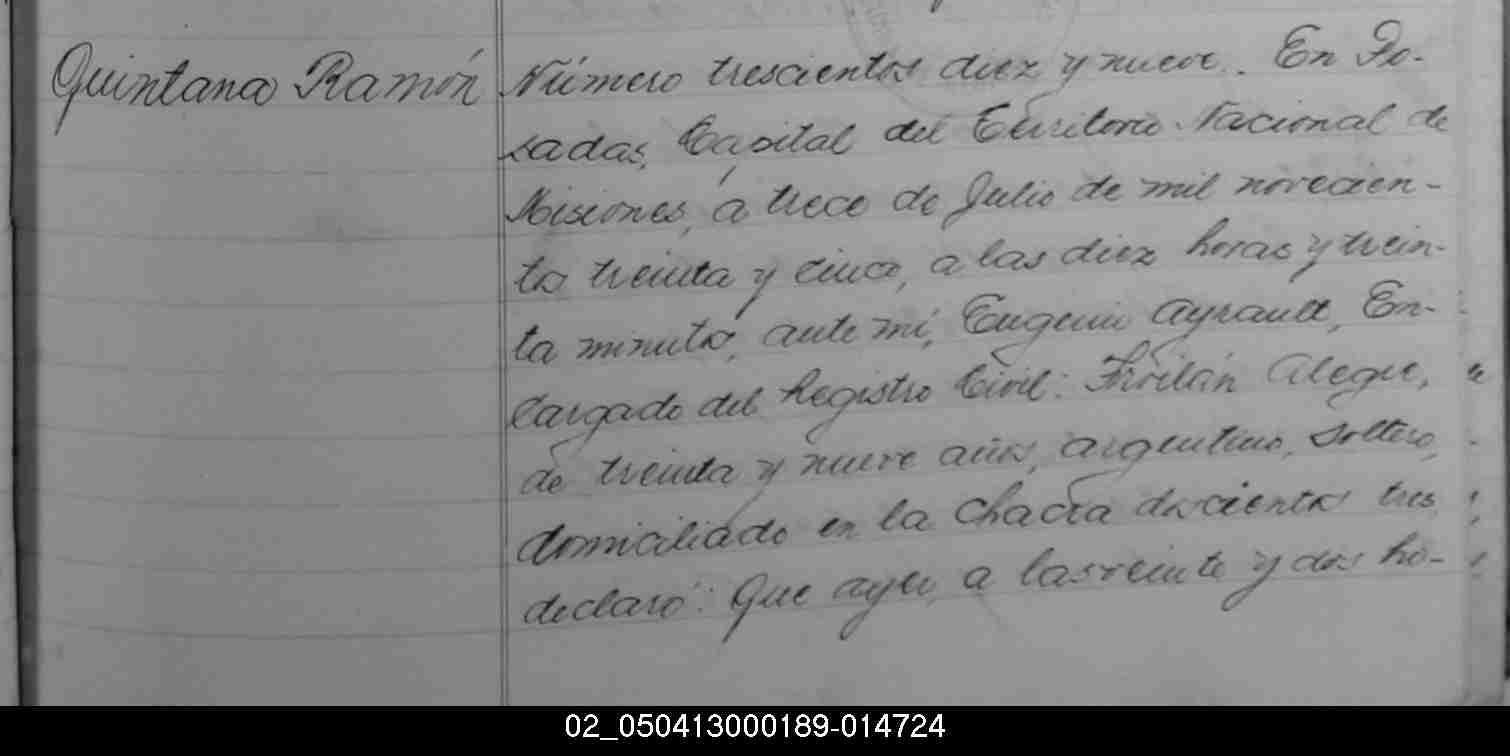 Quintana Ramón
Número trescientos diez y nueve. En Po-
sadas, Capital del Territorio Nacional de
Misiones, a trece de Julio de mil novecien-
tos treinta y cinco, a las diez horas y trein-
ta minutos, ante mí, Eugenio Ayrault, En-
cargado del Registro Civil: Froilán Alegre,
de treinta y nueve años, argentino, soltero,
domiciliado en la Chacra doscientos tres
declaró: Que ayer, a las veinte y dos ho-
02_050413000189-014724